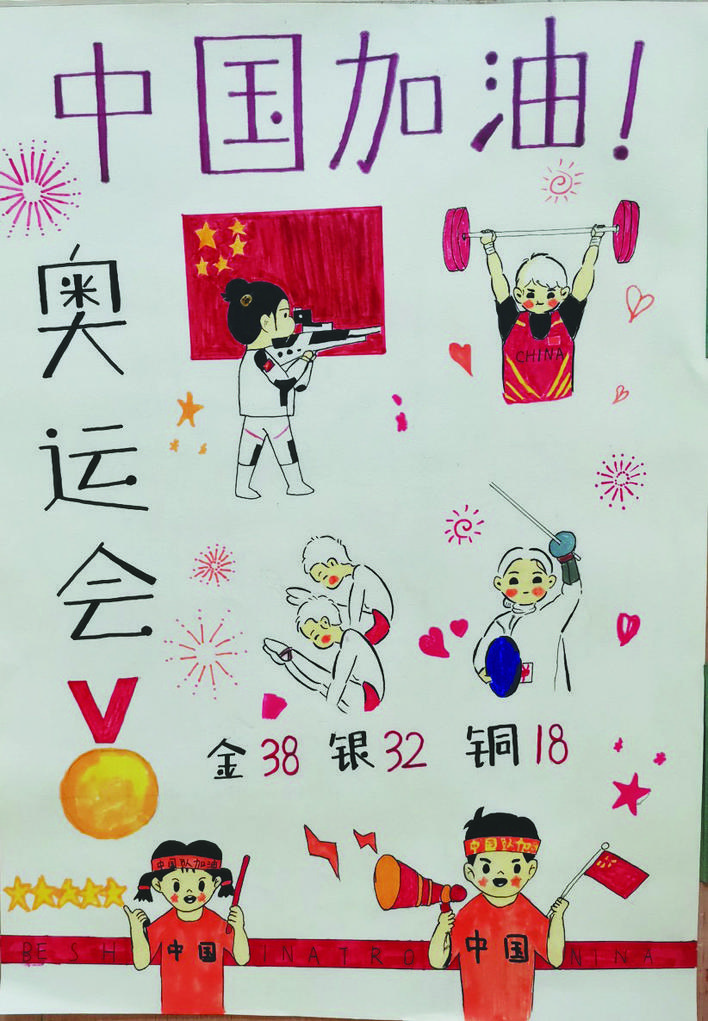 中国加油!
奥运会
CHINA
金38 银32 铜18
中国队加油
中国队加油
中国
中国